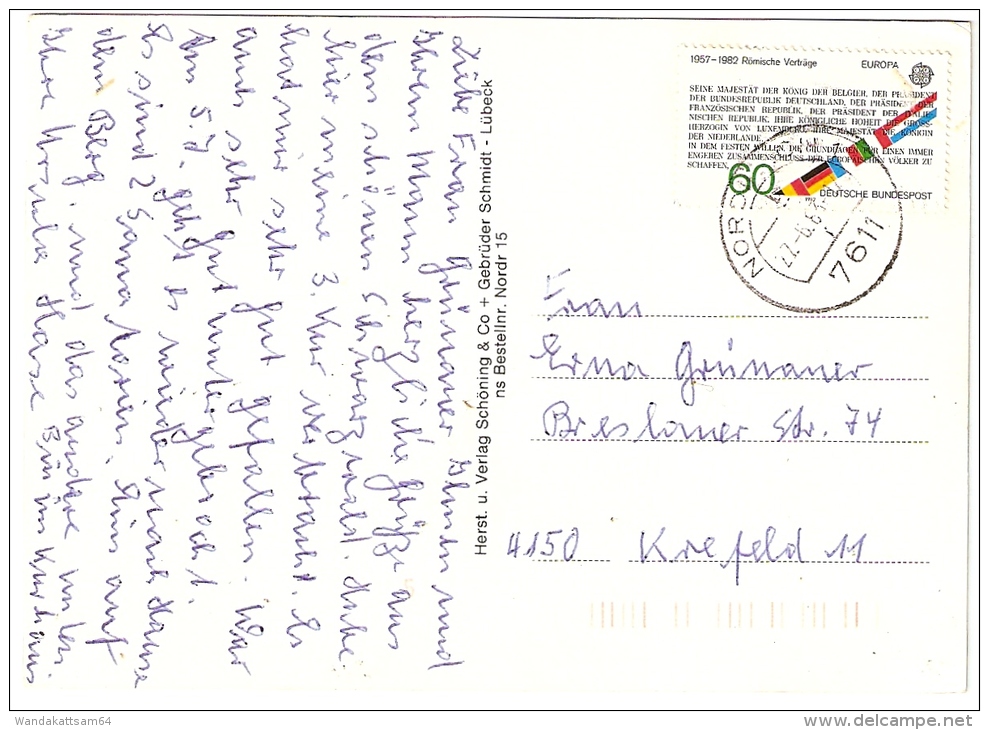 Liebe Frau Grünauer Ihnen und
Ihrem Mann herzliche Grüße aus
dem schönen Schwarzwald. Habe
hier meine 3. Kur verbracht. Es
hat mir sehr gut gefallen. War
auch sehr gut untergebracht.
Am 5.7. geht es wieder nach Hause
Es sind 2 Sanatorien. Eins auf
dem Berg und das andere unten
Ihre Ursula Hase Bin im Kurhaus
Herst. u. Verlag Schöning & Co + Gebrüder Schmidt - Lübeck
ns Bestellnr. Nordr 15
1957–1982 Römische Verträge EUROPA
SEINE MAJESTÄT DER KÖNIG DER BELGIER, DER PRÄSIDENT
DER BUNDESREPUBLIK DEUTSCHLAND, DER PRÄSIDENT DER
FRANZÖSISCHEN REPUBLIK, DER PRÄSIDENT DER ITALIE-
NISCHEN REPUBLIK, IHRE KÖNIGLICHE HOHEIT DIE GROSS-
HERZOGIN VON LUXEMBURG, IHRE MAJESTÄT DIE KÖNIGIN
DER NIEDERLANDE,
IN DEM FESTEN WILLEN, DIE GRUNDLAGEN FÜR EINEN IMMER
ENGEREN ZUSAMMENSCHLUSS DER EUROPÄISCHEN VÖLKER ZU
SCHAFFEN,
60
DEUTSCHE BUNDESPOST
NORD
7611
Frau
Erna Grünauer
Breslauer Str. 74
4150 Krefeld 11
Wandakattsam64
delcampe.net